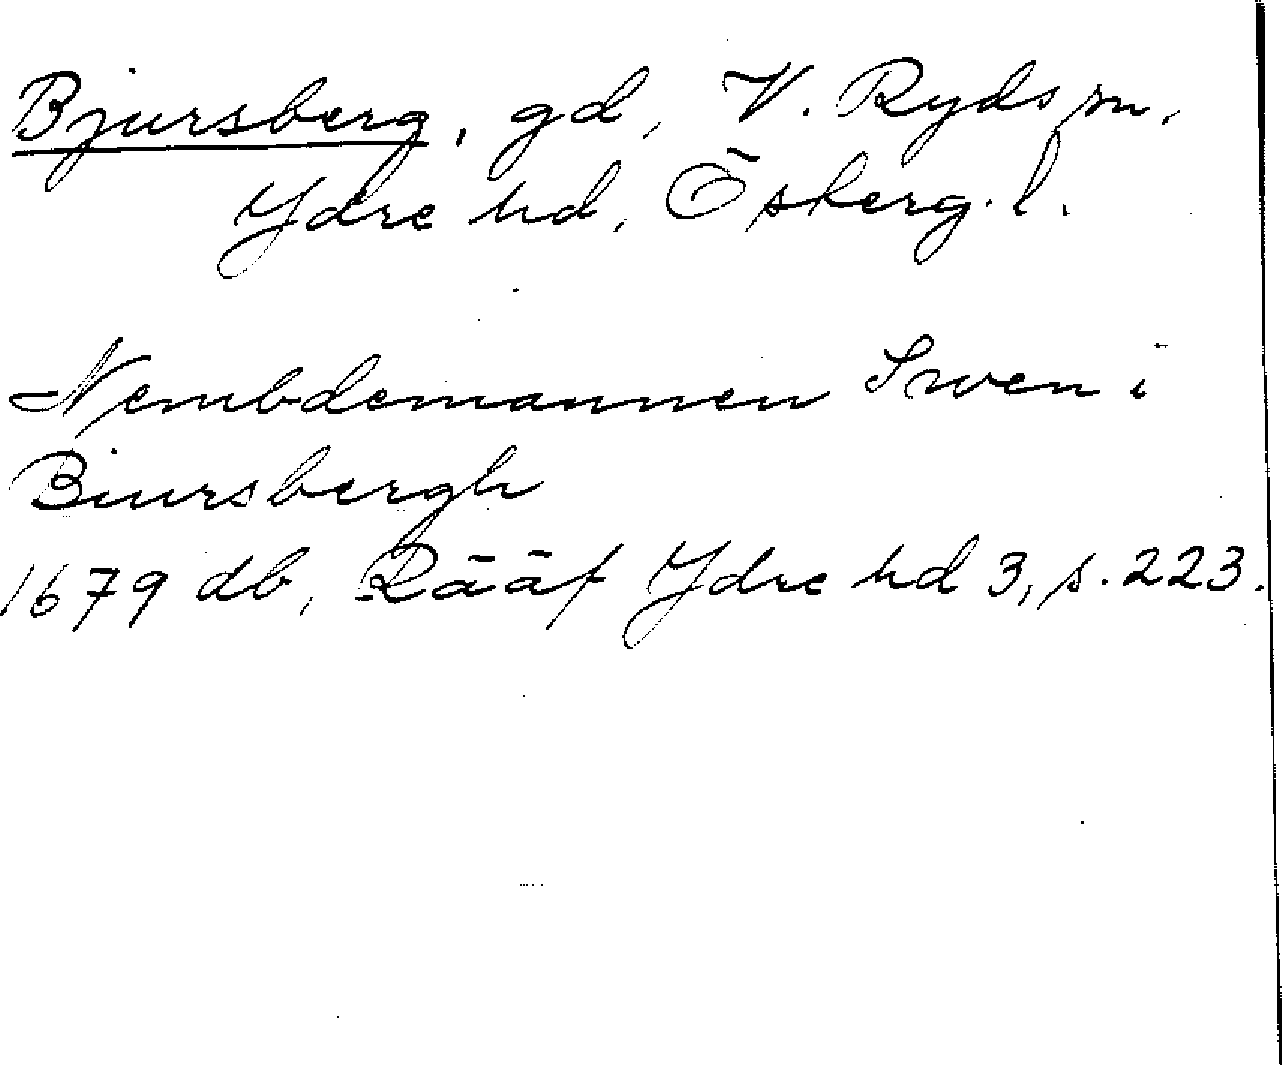 Bjursberg, gd, V. Ryds sn,
Ydre hd, Österg. l.
Nembdemannen Swen i
Biursbergh
1679 db, Rääf Ydre hd 3, s. 223.